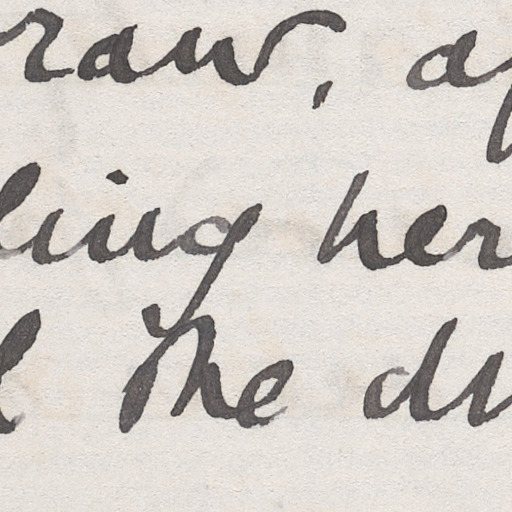 raw, a
ling her
the du